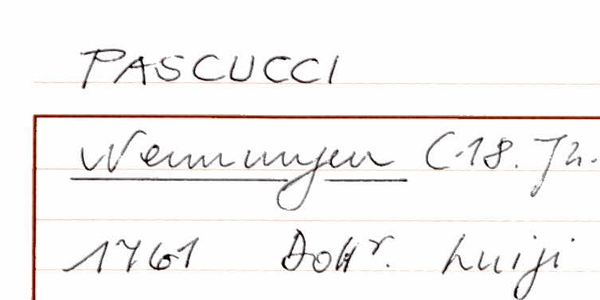 PASCUCCI
Nennungen (18. Jh.
1761 Dottr. Luigi